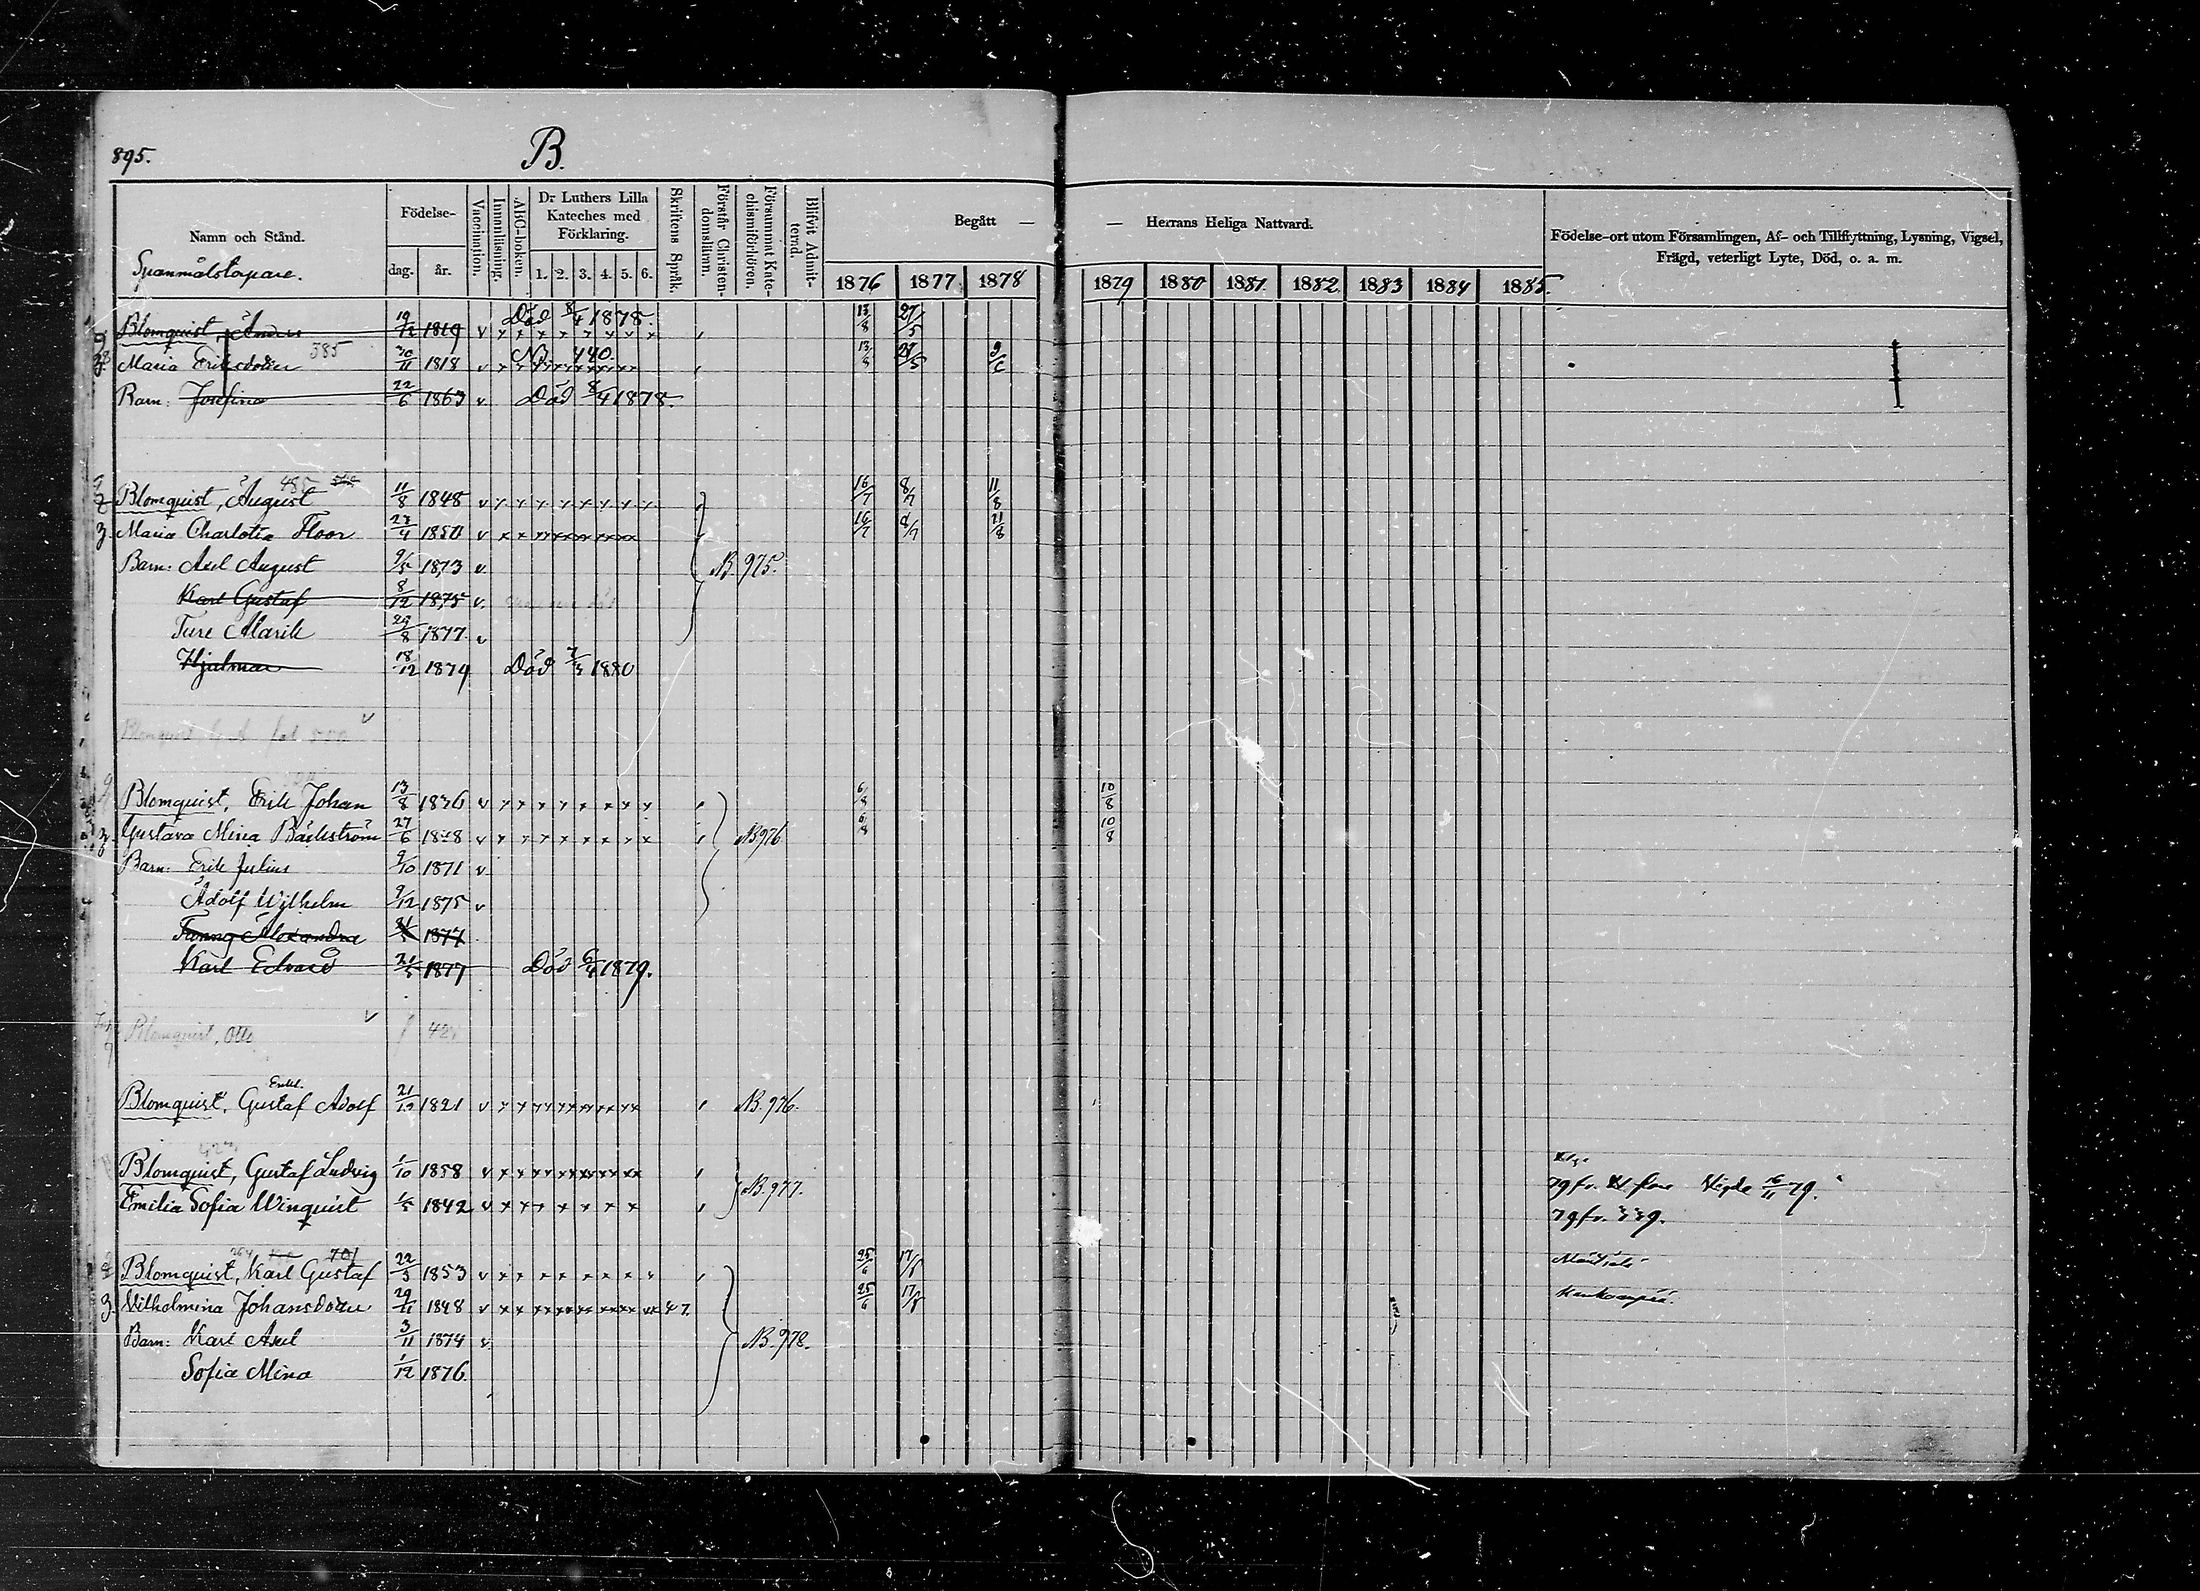 895.
B.
Namn och Stånd.
Födelse-
dag. år.
Vaccination.
Innanläsning.
ABC-boken.
Dr Luthers Lilla Kateches med Förklaring.
1. 2. 3. 4. 5. 6.
Skriftens Språk.
Förstår Christendomsläran.
Försummat Katechismiförhören.
Blifvit Admitterad.
Begått — — Herrans Heliga Nattvard.
1876 1877 1878 1879 1880 1881 1882 1883 1884 1885.
Födelse-ort utom Församlingen, Af- och Tillflyttning, Lysning, Vigsel,
Frägd, veterligt Lyte, Död, o. a. m.
Spanmålstorpare.
Blomquist, Anders 19/12 1819 v Död 8/4 1878. 13/8 27/5
385
Maria Eriksdotter 30/11 1818 v N. 440 13/8 27/5
Barn: Josefina 22/6 1863 v. Död 8/4 1878.
485
Blomquist, August 11/8 1848 v 16/7 8/7 11/8
3. Maria Charlotta Floor 27/4 1850 v 16/7 8/7 21/8
Barn: Axel August 9/5 1873 v. N. 975.
Karl Gustaf 8/12 1875 v.
Ture Alarik 29/8 1877 v
Hjalmar 18/12 1879 Död 7/3 1880
Blomquist
Blomquist, Erik Johan 13/8 1836 v 6/8 10/8
3. Gustava Mina Bäckström 27/6 1828 v N. 976 6/8 10/8
Barn: Erik Julius 9/10 1871 v
Adolf Wilhelm 9/12 1875 v
Fanny Alexandra 1877
Karl Edvard 21/5 1877 Död 6/4 1879.
Blomquist, Otto
Enkl.
Blomquist, Gustaf Adolf 21/12 1821 v N. 976.
Blomquist, Gustaf Ludvig 1/10 1858 v N. 977. 79 fr. Vigde 16/11 79.
Emilia Sofia Winquist 1/5 1842 v 79 fr. 339.
701
Blomquist, Karl Gustaf 22/3 1853 v 25/6 17/6
3. Vilhelmina Johansdotter 29/11 1848 v 47. 25/6 17/8
Barn: Karl Axel 3/11 1874 v. N. 978.
Sofia Mina 1/12 1876.